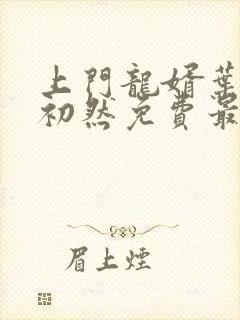 上門龍婿葉
初然免費最
眉上煙